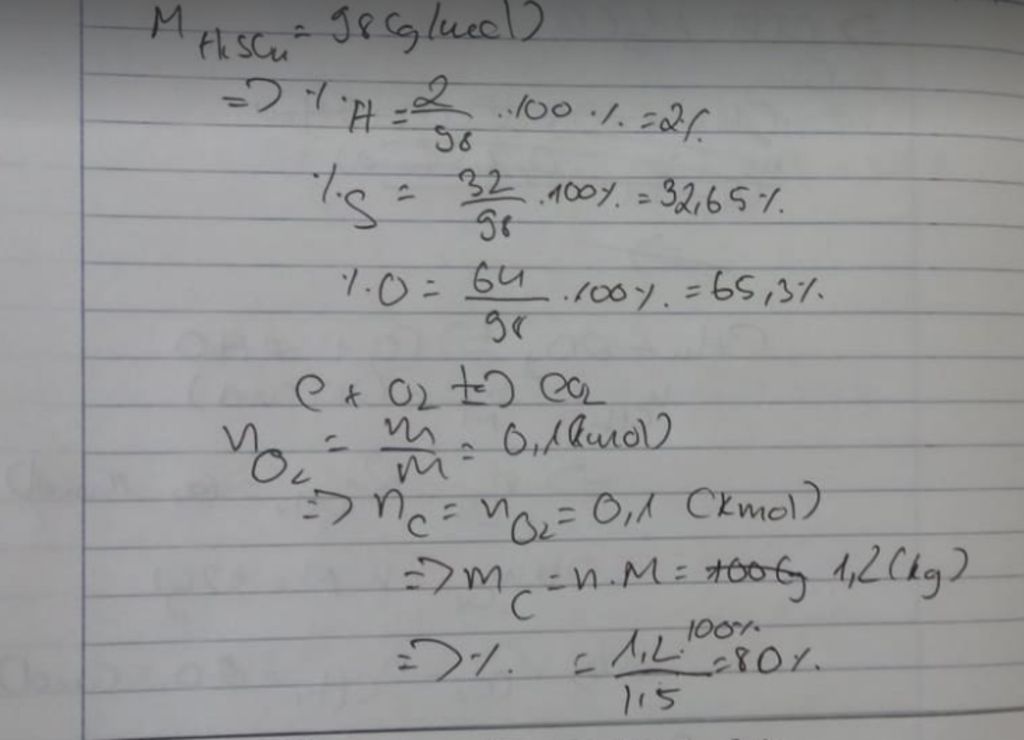 M H₂SO₄ = 98 (g/mol)
=> % H = 2/98 . 100 % = 2%
% S = 32/98 . 100% = 32,65 %.
% O = 64/98 . 100% = 65,3%.
C + O₂ t=> CO₂
n O₂ = m/M = 0,1 (kmol)
=> n C = n O₂ = 0,1 (kmol)
=> m C = n.M = 1,2 (kg)
=> % = 1,2.100%/1,5 = 80 %.